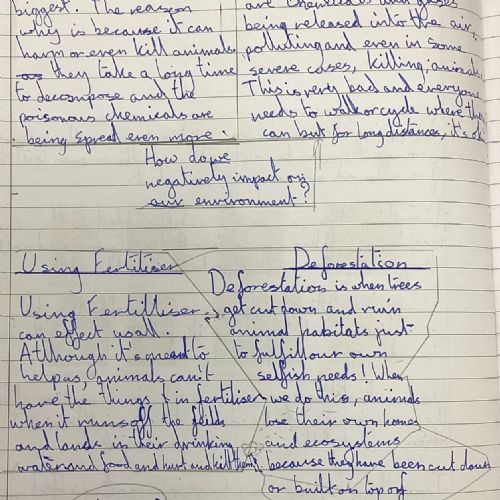 biggest. The reason
why is because it can
harm or even kill animals
as they take a long time
to decompose and the
poisonous chemicals are
being spread even more.
are chemicals and gases
being released into the air,
polluting and even in some
severe cases, killing animals
This is very bad and everyone
needs to walk or cycle where they
can but for long distances, it's ok
How do we
negatively impact on
our environment?
Using Fertiliser
Using Fertilliser
can effect us all.
Although it's spread to
help us, animals can't
have the things in fertiliser
when it runs off the feilds
and lands in their drinking
water and food and hurt and kill them
Deforestation
Deforestation is when trees
get cut down and ruin
animal habitats just
to fulfill our own
selfish needs! When
we do this, animals
lose their own homes
and ecosystems
because they have been cut down
or built on top of